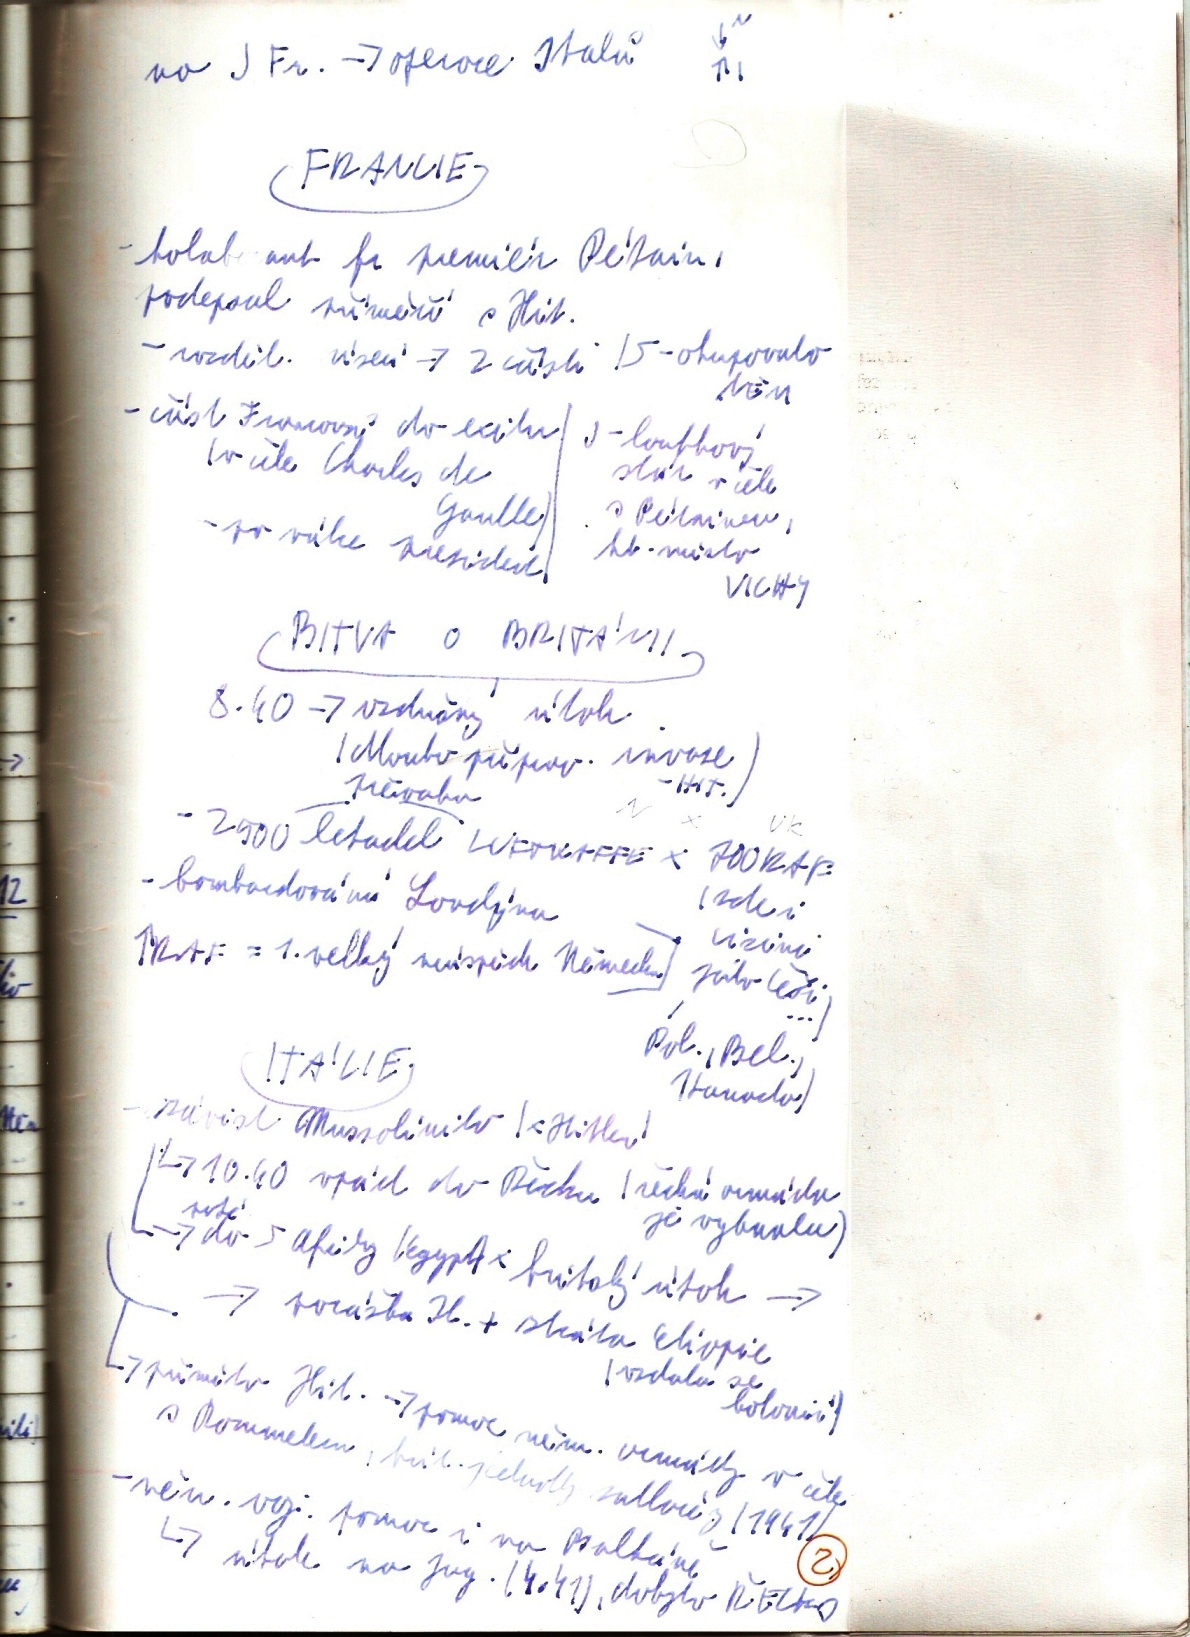 na J Fr. → operace Italů
FRANCIE
- kolaborant fr premiér Pétain,
podepsal příměří s Hit.
- rozděl. území → 2 části (S - okupovalo
Něm
- část Francouzů do exilu
(v čele Charles de
Gaulle)
- po válce prezident
J - loutkový
stát v čele
s Pétainem,
hl. město
VICHY
BITVA O BRITÁNII
8.40 → vzdušný útok
(dlouho připrav. invaze
- HIT.)
převaha
N x UK
- 2900 letadel LUFTWAFFE x 700 RAF
(zde i
cizinci
jako Češi,
...)
Pol., Bel.,
Kanada)
- bombardování Londýna
RAF = 1. velký neúspěch Německa
ITÁLIE
- závist Mussoliniho (x Hitler)
→ 10.40 vpád do Řecka (řecká armáda
je vyhnala)
též
→ do S Afriky (Egypt) x britský útok →
→ porážka It. + ztráta Etiopie
(vzdala se
kolonií)
→ přimělo Hit. → pomoc něm. armády v čele
s Rommelem, brit. jednotky zatlačeny (1941)
- něm. voj. pomoc i na Balkáně
↳ útok na Jug. (4.41), dobylo ŘECKO
2
12